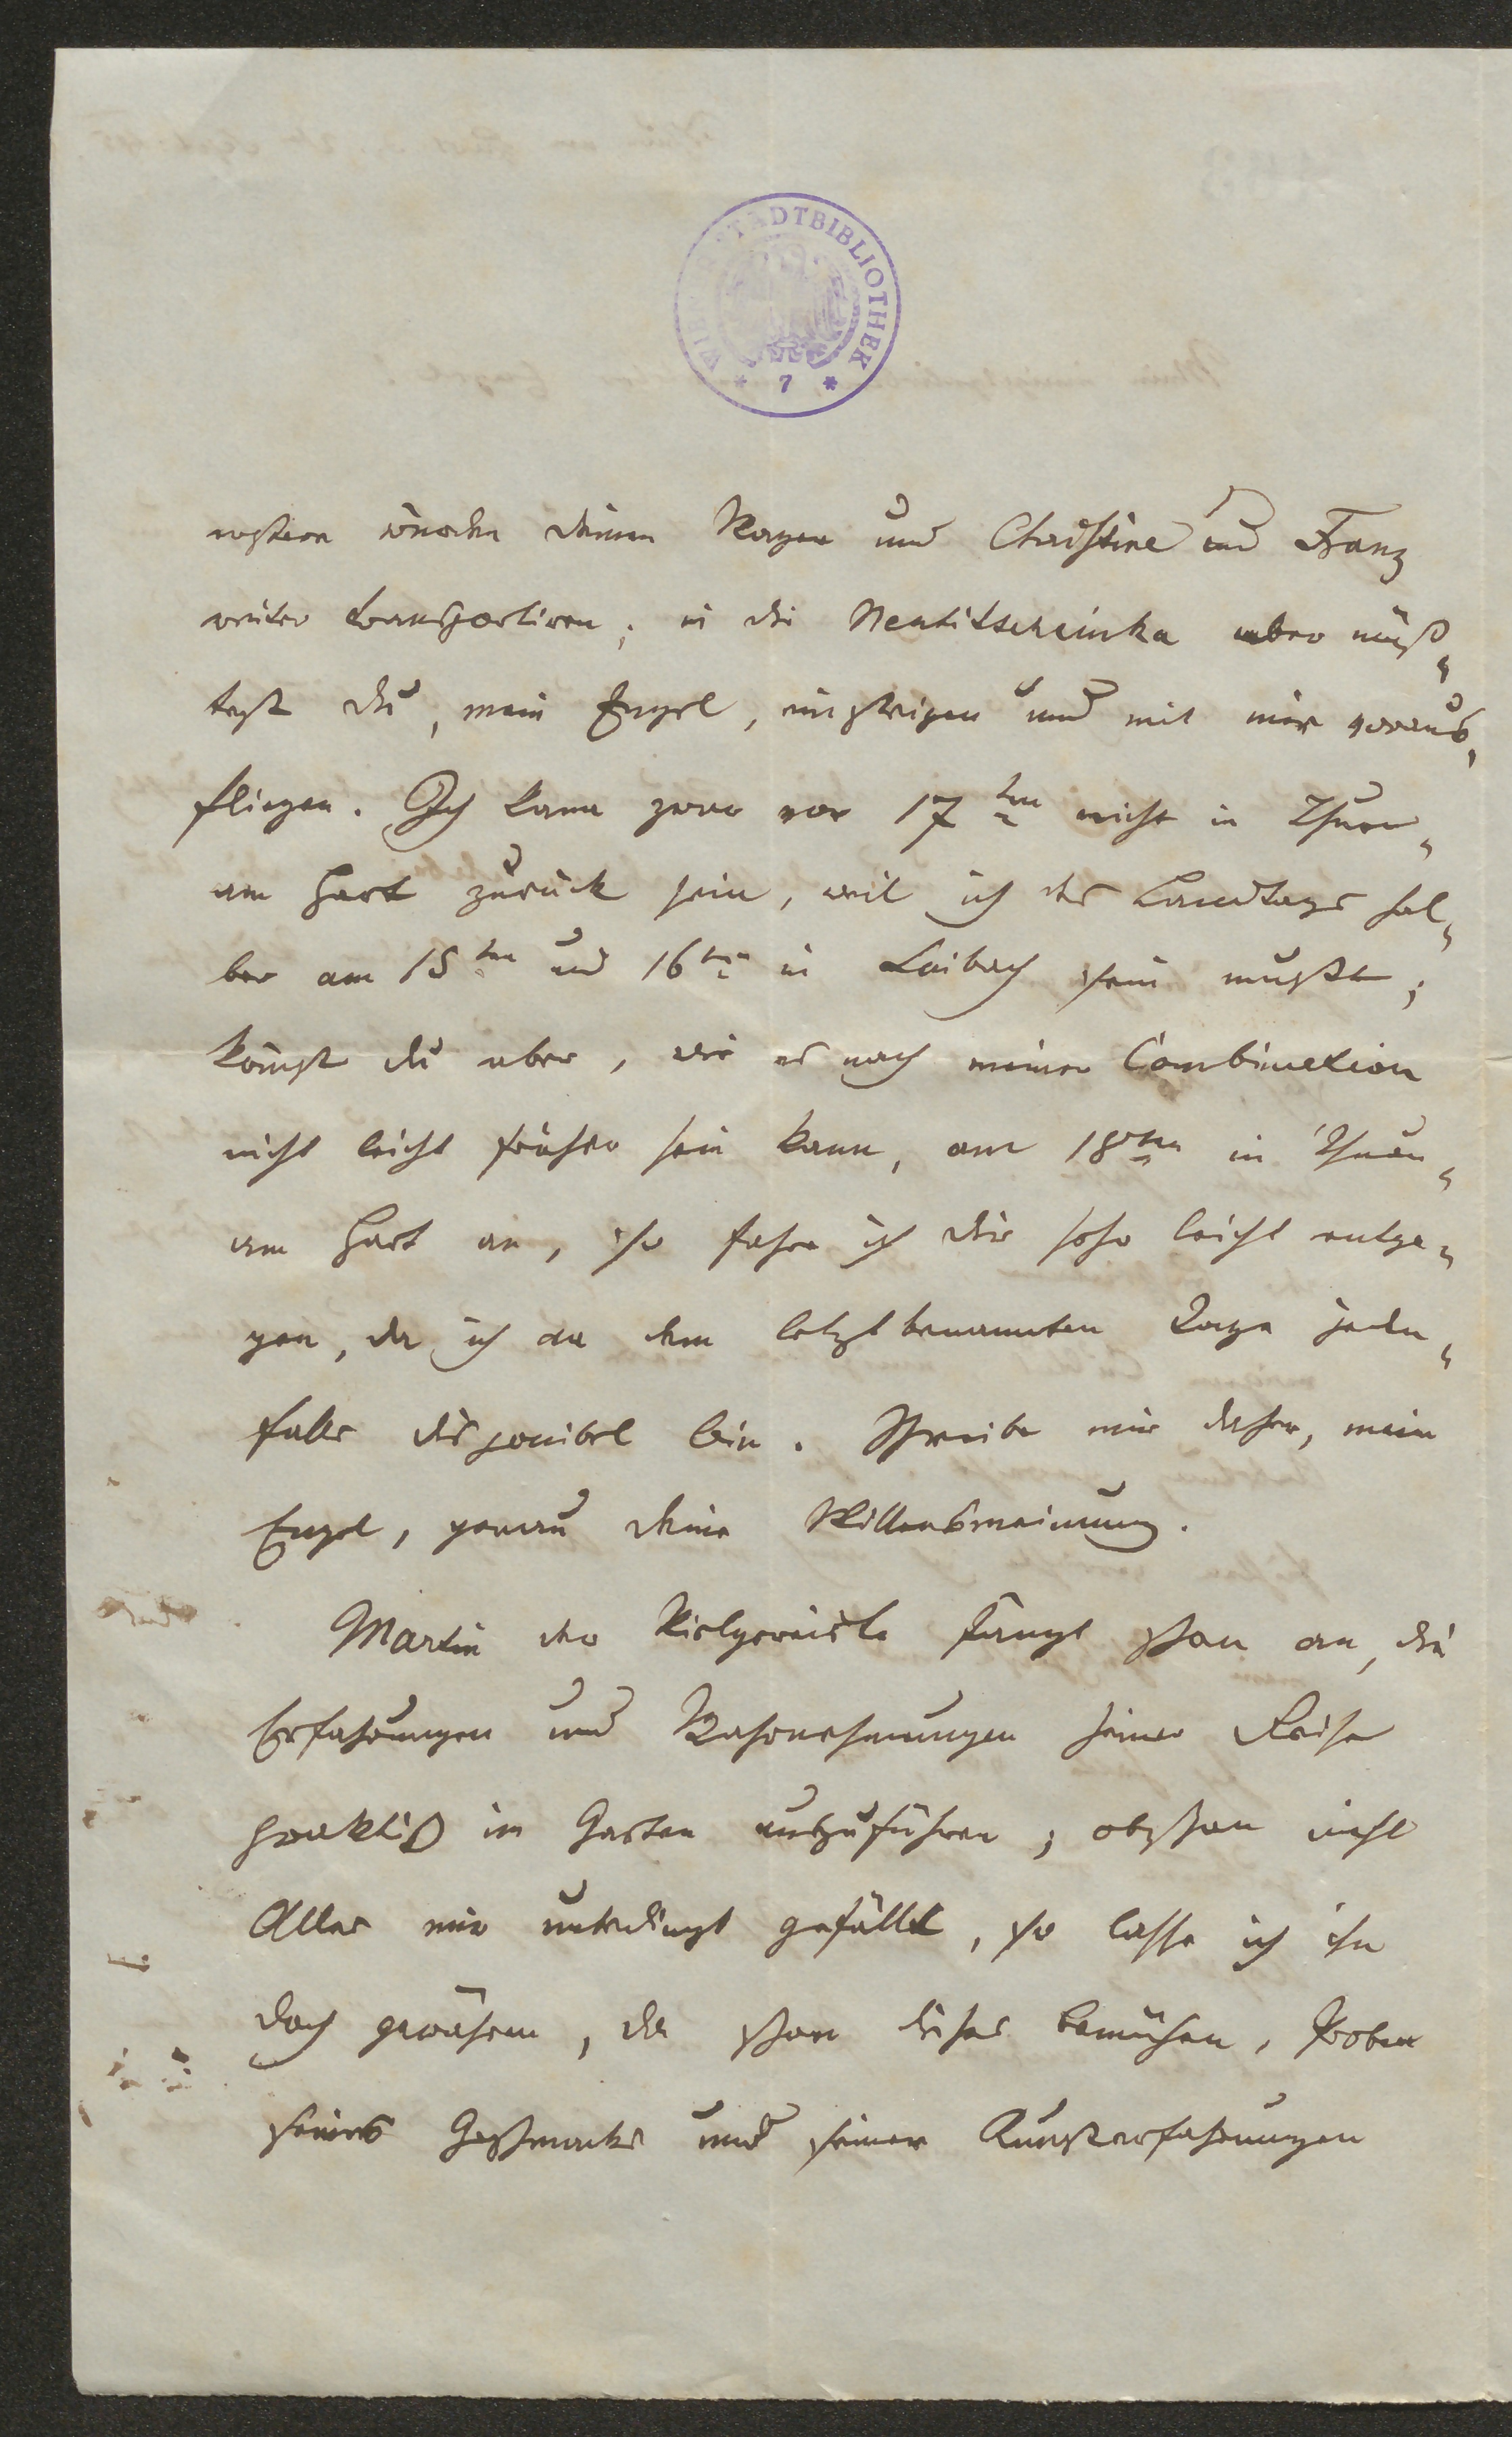 WIENER STADTBIBLIOTHEK
* 7 *
erstern würden deinen Wagen und Christine und Franz
weiter transportiren; in die Neutitscheinka aber müß„
test du, mein Engel, einsteigen und mit mir voraus„
fliegen. Ich kann zwar vor 17ten nicht in Thurn„
am Hart zurück sein, weil ich des Landtags hal„
ber am 15ten und 16ten in Laibach sein mußte;
kömst du aber, wie es nach meiner Combination
nicht leicht früher sein kann, am 18ten in Thurn„
am Hart an, so fahre ich dir sehr leicht entge„
gen, da ich an dem letztbenannten Tage jeden„
falls disponibel bin. Schreibe mir daher, mein
Engel, genau deine Willensmeinung.
Martin der Vielgereiste fängt schon an, die
Erfahrungen und Wahrnehmungen seiner Reise
praktisch im Garten auszuführen; obschon nicht
Alles mir unbedingt gefällt, so lasse ich ihn
doch gewähren, da schon dieses Bemühen, Proben
seines Geschmacks und seiner Kunsterfahrungen